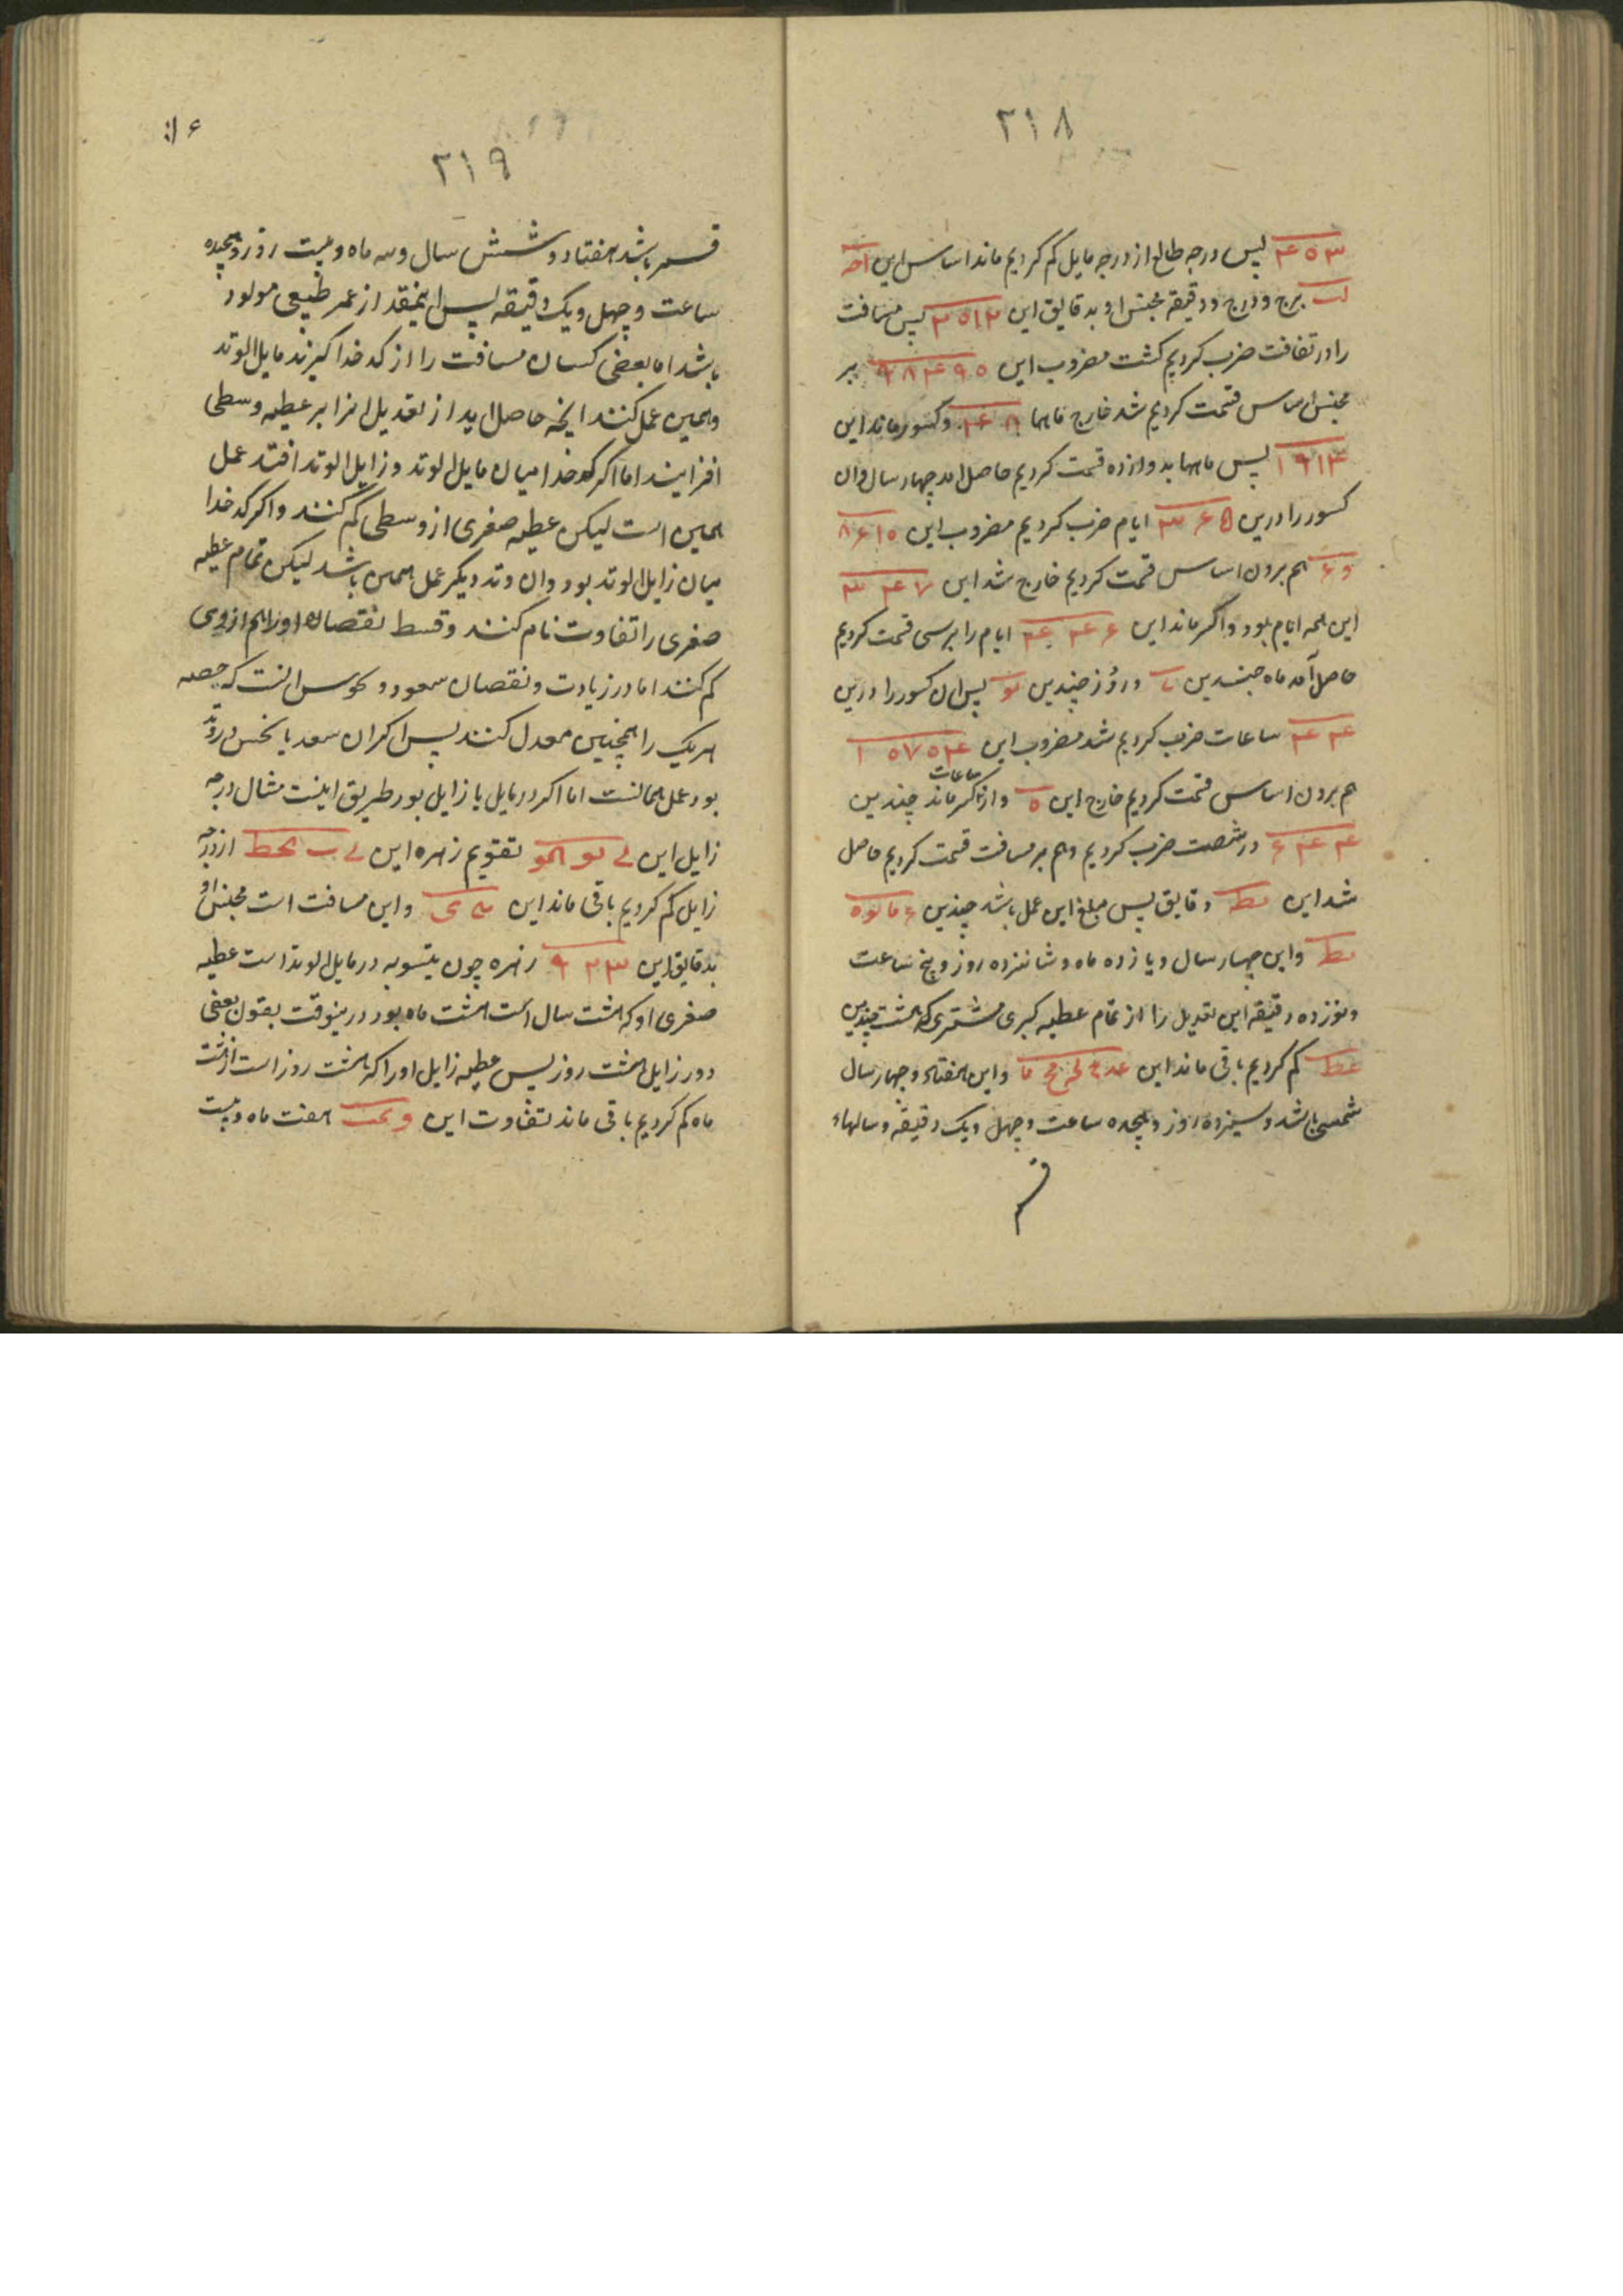 ۲۱۸
۴۵۳ پس درجه طالع از درجه مایل کم کردیم ماند اساس این
لب برج و درج و دقیقه مجنس او بدقایق این ۳۵۱۲ پس مسافت
را در تفاوت ضرب کردیم کشت مضروب این ۹۸۴۹۵ بر
مجنس اساس قسمت کردیم شد خارج ماهها و کسور ماند این
۱۹۱۴ پس ماهها بدوازده قسمت کردیم حاصل امد چهار سال وان
کسور را درین ۳۶۵ ایام ضرب کردیم مضروب این ۸۶۱۵
هم برون اساس قسمت کردیم خارج شد این ۳۴۷
این همه ایام بود واکر ماند این ایام را برسی قسمت کردیم
حاصل آمد ماه چندین و روز چندین پس ان کسور را درین
۲۴ ساعات ضرب کردیم شد مضروب این ۱۵۷۵۴
هم برون اساس قسمت کردیم خارج این ۵ ساعات و از کسر ماند چندین
در شصت ضرب کردیم و هم بر مسافت قسمت کردیم حاصل
شد این نط دقایق پس مبلغ این عمل باشد چندین
نط واین چهار سال و یازده ماه و شانزده روز و پنج ساعت
و نوزده دقیقه این تعدیل را از تمام عطیه کبری مشتری که هشت چندین
عط کم کردیم باقی ماند این واین هفتاد و چهار سال
شمسی باشد و سیزده روز و هجده ساعت و چهل و یک دقیقه و سالهاء
قم
۲۱۹
قمر باشد هفتاد و شش سال و سه ماه و بیست روز و هجده
ساعت و چهل و یک دقیقه پس اینمقدار عمر طبیعی مولود
باشد اما بعضی کسان مسافت را از کدخدا کیرند مایل الوتد
و همین عمل کنند انچه حاصل اید از تعدیل انرا بر عطیه وسطی
افزایند اما اکر کدخدا میان مایل الوتد و زایل الوتد افتد عمل
همین است لیکن عطیه صغری از وسطی کم کنند و اکر کدخدا
میان زایل الوتد بود وان وتد دیکر عمل همین باشد لیکن تمام عطیه
صغری را تفاوت نام کنند و قسط نقصان او را هم از وی
کم کنند اما در زیادت و نقصان سعود و نحوس انست که حصه
هریک را همچنین معدل کنند پس اکر ان سعد یا نحس در وتد
بود عمل همانست اما اکر در مایل یا زایل بود طریق اینست مثال درجه
زایل این تقویم زهره این از درجه
زایل کم کردیم باقی ماند این واین مسافت است مجنس او
بدقایق این ۹۲۳ زهره چون بتسویه در مایل الوتد است عطیه
صغری او که هشت سال است هشت ماه بود درینوقت بقول بعضی
و در زایل هشت روز پس عطیه زایل او را که هشت روز است از هشت
ماه کم کردیم باقی ماند تفاوت این هفت ماه و بیست